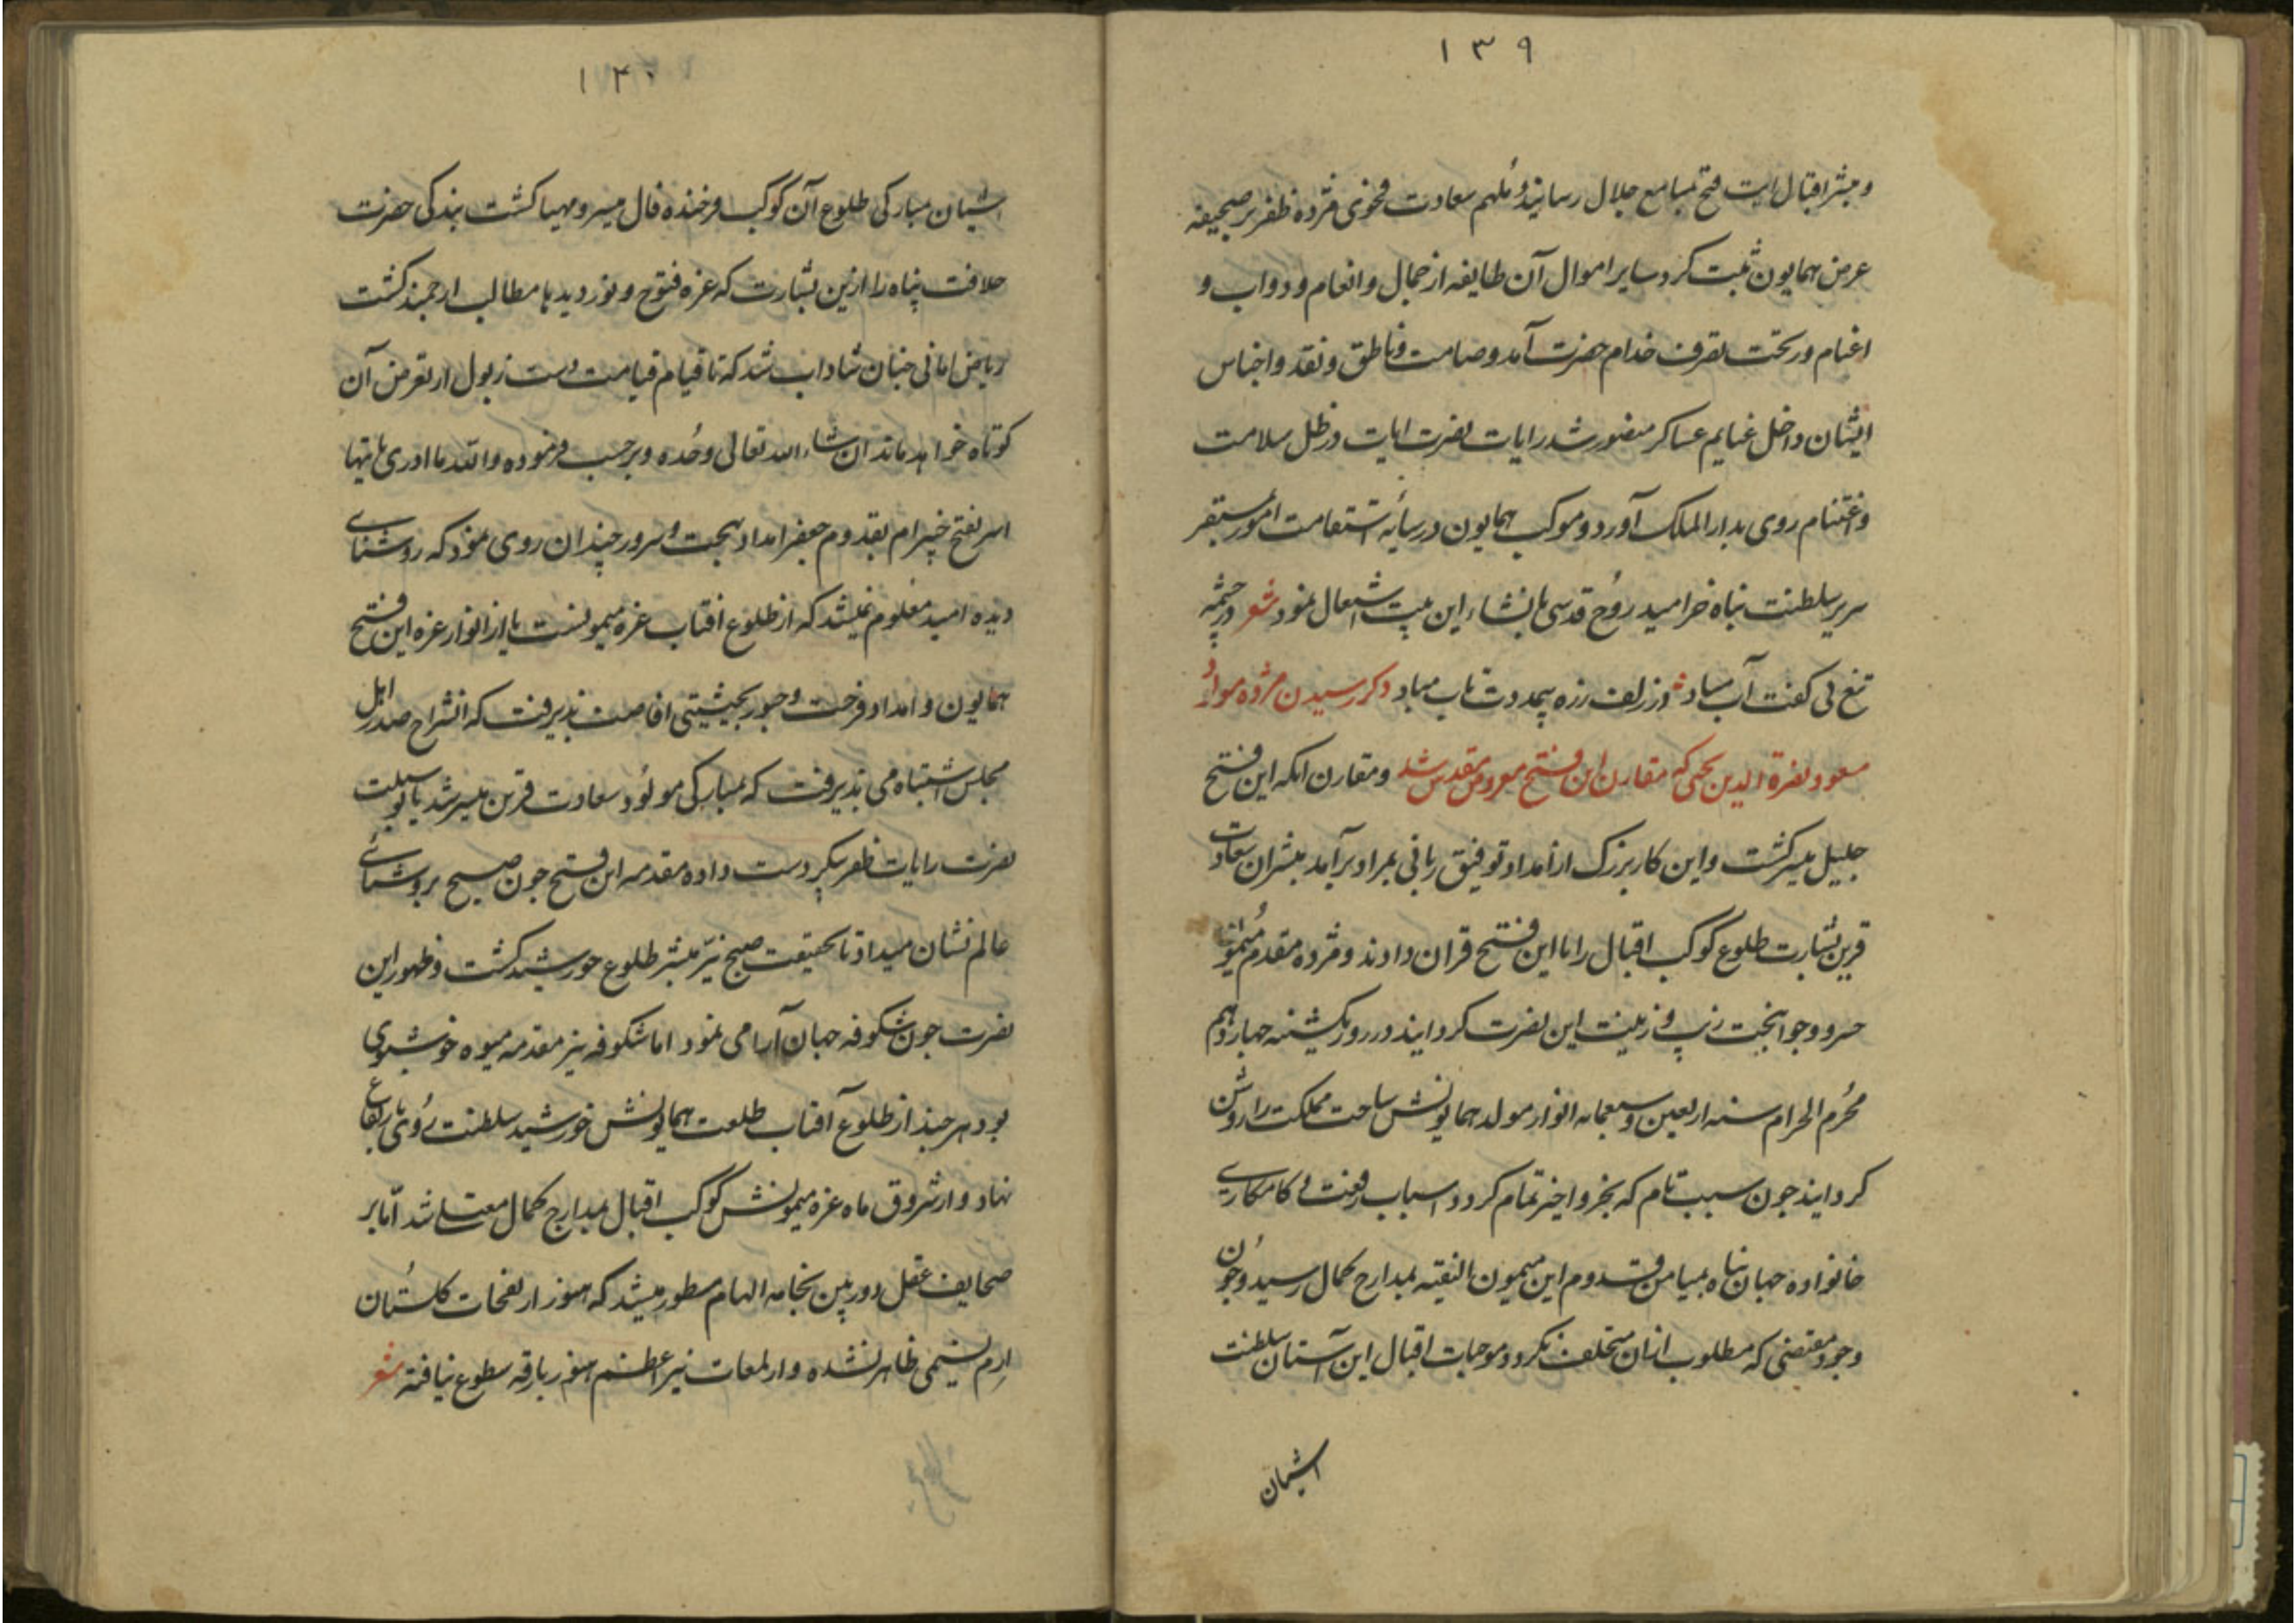 ۱۳۹
و مبشر اقبال ایت فتح بمسامع جلال رسانید و ملهم سعادت فحوی مژده ظفر بر صحیفه
عرض همایون ثبت کرد سایر اموال آن طایفه از جمال و انعام و دواب و
اغنام در تحت تصرف خدام حضرت آمد و صامت و ناطق و نقد و اجناس
ایشان داخل غنایم عساکر منصور شد رایات نصرت ایات در ظل سلامت
و اغتنام روی بدار الملک آورد و موکب همایون در سایه استقامت امور بمستقر
سریر سلطنت پناه خرامید روح قدسی بانشاء این بیت اشتعال نمود شعر در چشمه
تیغ بی کفت آب مباد در زلف زره بیمددت تاب مباد ذکر رسیدن مژده مولود
مسعود نصرة الدین یحیی که مقارن این فتح معروض مقدس شد و مقارن انکه این فتح
جلیل میسر کشت و این کار بزرک از امداد توفیق ربانی بمراد برآمد مبشران سعادت
قرین بشارت طلوع کوکب اقبال را با این فتح قران دادند و مژده مقدم میمون
خسرو جوانبخت زیب و زینت این نصرت کردانید در روز یکشنبه چهاردهم
محرم الحرام سنه اربعین و سبعمایه انوار مولد همایونش ساحت مملکت را روشن
کردانید جون سبب تام که بجزو اخیر تمام کردد اسباب رفعت و کامکاری
خانواده جهان پناه بمیامن قدوم این میمون النقیبه بمدارج کمال رسید و جون
وجود مقتضی که مطلوب ازان متخلف نکردد موجبات اقبال این آستان سلطنت
اشیان
۱۴۰
اشیان مبارکی طلوع آن کوکب فرخنده فال میسر و مهیا کشت بندکی حضرت
خلافت پناه را ازین بشارت که غره فتوح و نور دیدها مطالب ارجمند کشت
ریاض امانی جنان شاداب شد که تا قیام قیامت دست ذبول از تعرض آن
کوتاه خواهد ماند ان شاء الله تعالی وحده و برحسب فرموده والله ما ادری بایتها
اسر بفتح خیبر ام بقدوم جعفر امداد بهجت و سرور چندان روی نمود که روشنای
دیده امید معلوم نمیشد که از طلوع افتاب غره میمونست یا از انوار غره این فتح
همایون و امداد فرحت و حبور بحیثیتی افاضت پذیرفت که انشراح صدر اهل
مجلس اشتباه می پذیرفت که بمبارکی مولود سعادت قرین میسر شد یا بوسیلت
نصرت رایات ظفر پیکر دست داده مقدمه این فتح جون صبح بروشنائی
عالم نشان میداد تا بحقیقت صبح نیز مبشر طلوع خورشید کشت و ظهور این
نصرت جون شکوفه جهان آرا می نمود اما شکوفه نیز مقدمه میوه خوشبوی
بود هر جند از طلوع آفتاب طلعت همایونش خورشید سلطنت روی بارتفاع
نهاد و از شروق ماه غره میمونش کوکب اقبال بمدارج کمال معتلی شد اما بر
صحایف عقل دوربین بخامه الهام مسطور میشد که هنوز از نفحات کلستان
ارم نسیمی ظاهر نشده و از لمعات نیر اعظم هنوز بارقه سطوع نیافته شعر